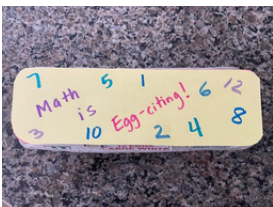 7 5 1 6 12
Math
is
Egg-citing!
3 10 2 4 8